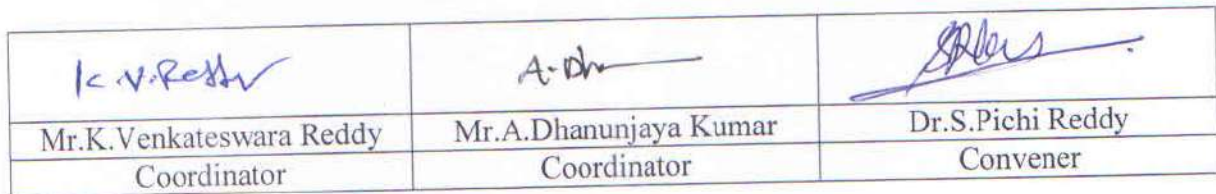 K.V.Reddy A.Dh
Mr.K.Venkateswara Reddy Mr.A.Dhanunjaya Kumar Dr.S.Pichi Reddy
Coordinator Coordinator Convener